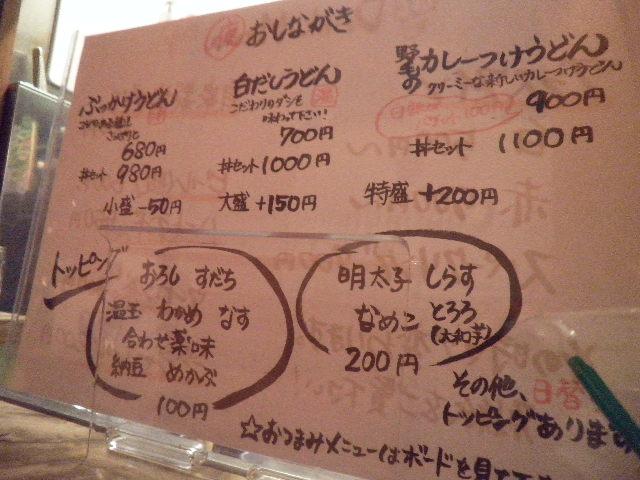 夜 おしながき
ぶっかけうどん
680円
丼セット 980円
白だしうどん
こだわりのダシを
味わって下さい!
700円
丼セット 1000円
カレーつけうどん
クリーミーな新しいカレーつけうどん
900円
丼セット 1100円
小盛 -50円 大盛 +150円 特盛 +200円
トッピング
おろし すだち
温玉 わかめ なす
合わせ薬味
納豆 めかぶ
100円
明太子 しらす
なめこ とろろ
(大和芋)
200円
その他、日替
トッピングあります
☆おつまみメニューはボードを見て下